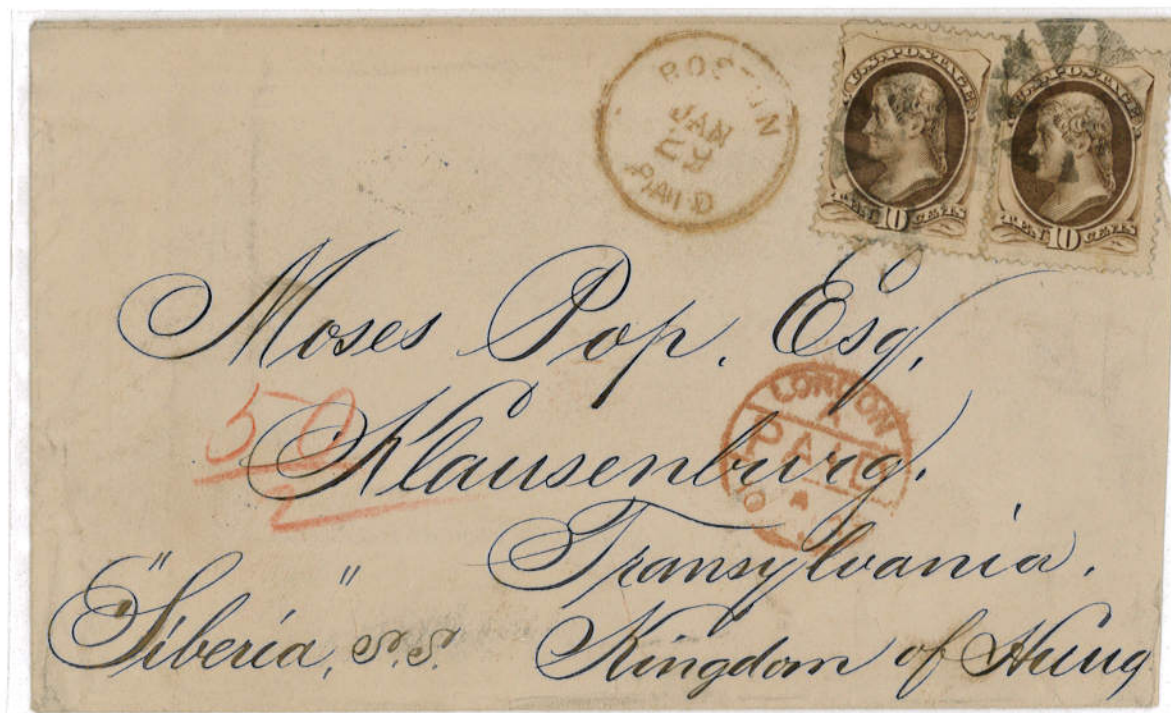 BOSTON
JAN
29
PAID
U.S. POSTAGE
TEN 10 CENTS
U.S. POSTAGE
TEN 10 CENTS
Moses Pop. Esq.
50
2
Klausenburg.
LONDON
PAID
Transylvania.
"Siberia," S.S.
Kingdom of Hung